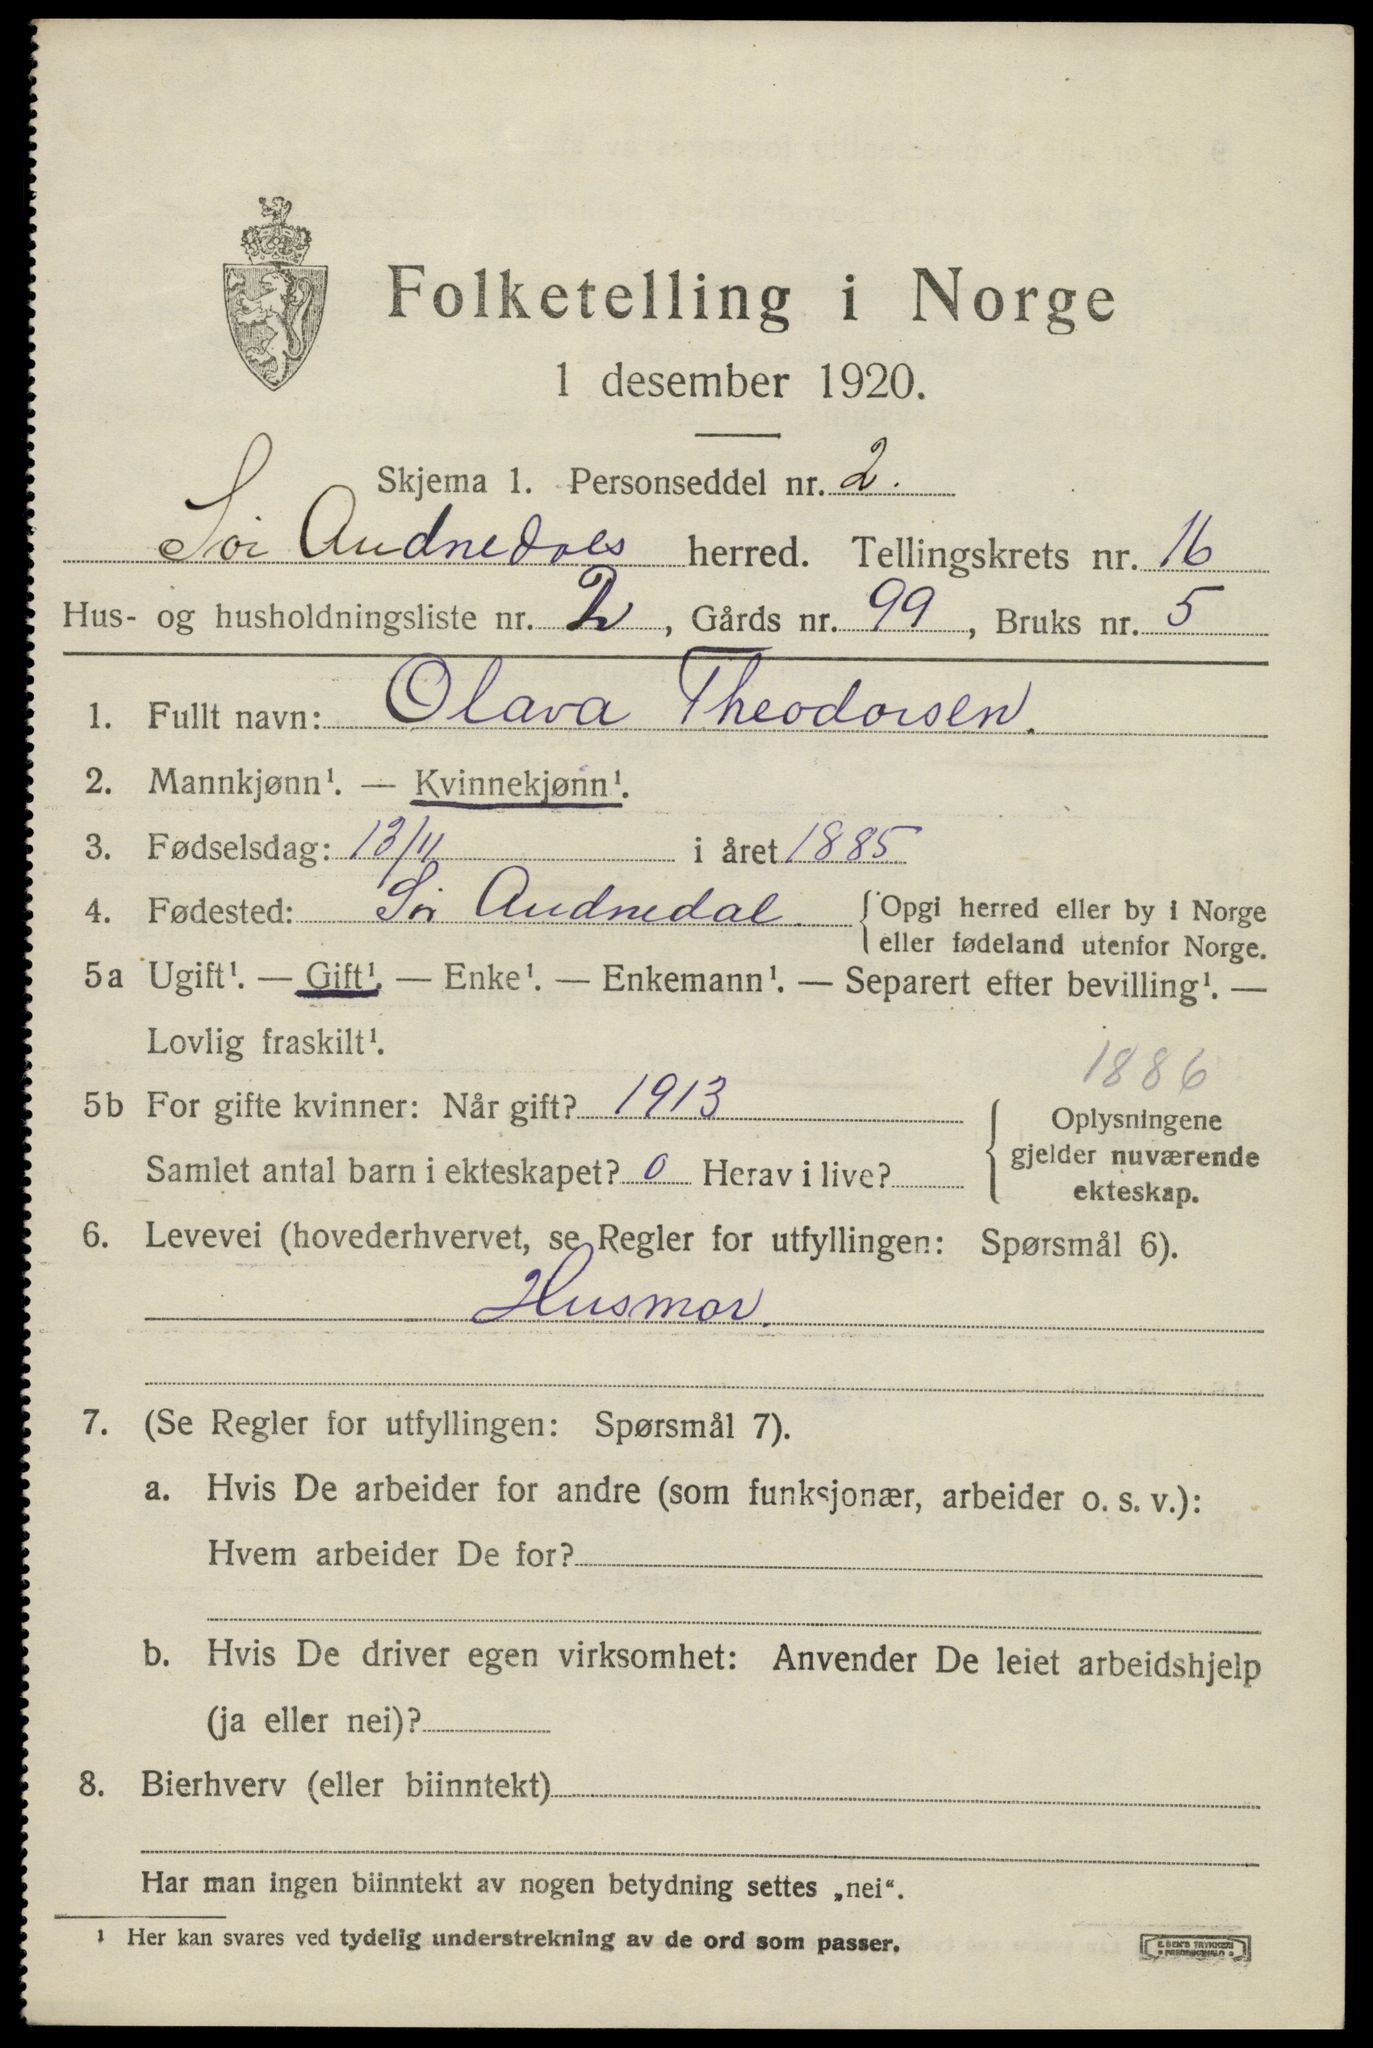 Folketelling i Norge
1 desember 1920.
Skjema 1. Personseddel nr. 2.
Sør Audnedals herred. Tellingskrets nr. 16
Hus- og husholdningsliste nr. 2, Gårds nr. 99, Bruks nr. 5
1. Fullt navn: Olava Theodorsen.
2. Mannkjønn¹. — Kvinnekjønn¹.
3. Fødselsdag: 13/11 i året 1885
4. Fødested: Sør Audnedal. {Opgi herred eller by i Norge
eller fødeland utenfor Norge.
5a Ugift¹. — Gift¹. — Enke¹. — Enkemann¹. — Separert efter bevilling¹. —
Lovlig fraskilt¹.
1886
5b For gifte kvinner: Når gift? 1913
Samlet antal barn i ekteskapet? 0 Herav i live?
{Oplysningene
gjelder nuværende
ekteskap.
6. Levevei (hovederhvervet, se Regler for utfyllingen: Spørsmål 6).
Husmor.
7. (Se Regler for utfyllingen: Spørsmål 7).
a. Hvis De arbeider for andre (som funksjonær, arbeider o. s. v.):
Hvem arbeider De for?
b. Hvis De driver egen virksomhet: Anvender De leiet arbeidshjelp
(ja eller nei)?
8. Bierhverv (eller biinntekt)
Har man ingen biinntekt av nogen betydning settes „nei“.
¹ Her kan svares ved tydelig understrekning av de ord som passer.